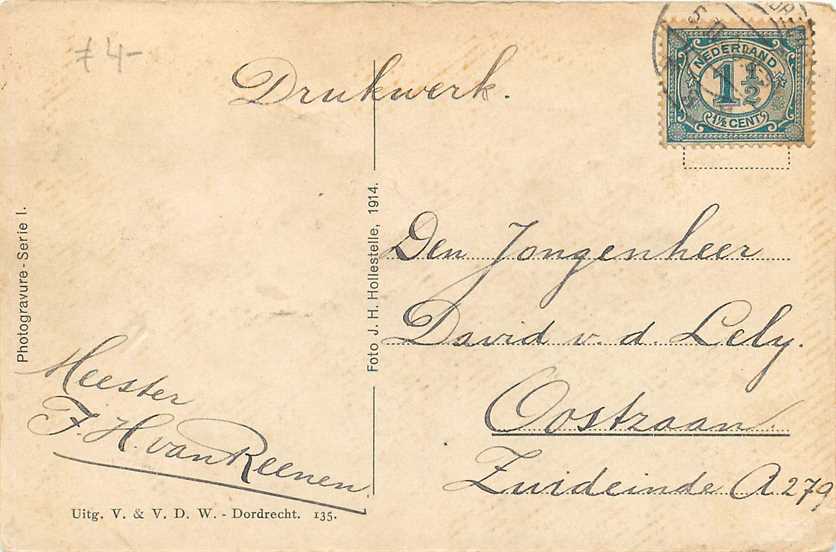 ƒ 4-
Drukwerk.
NEDERLAND
1 1/2
1½ CENT
Photogravure - Serie I.
Foto J. H. Hollestelle, 1914.
Den Jongenheer
David v. d. Lely.
Oostzaan
Zuideinde A 279
Meester
F. H. van Reenen
Uitg. V. & V. D. W. - Dordrecht. 135.